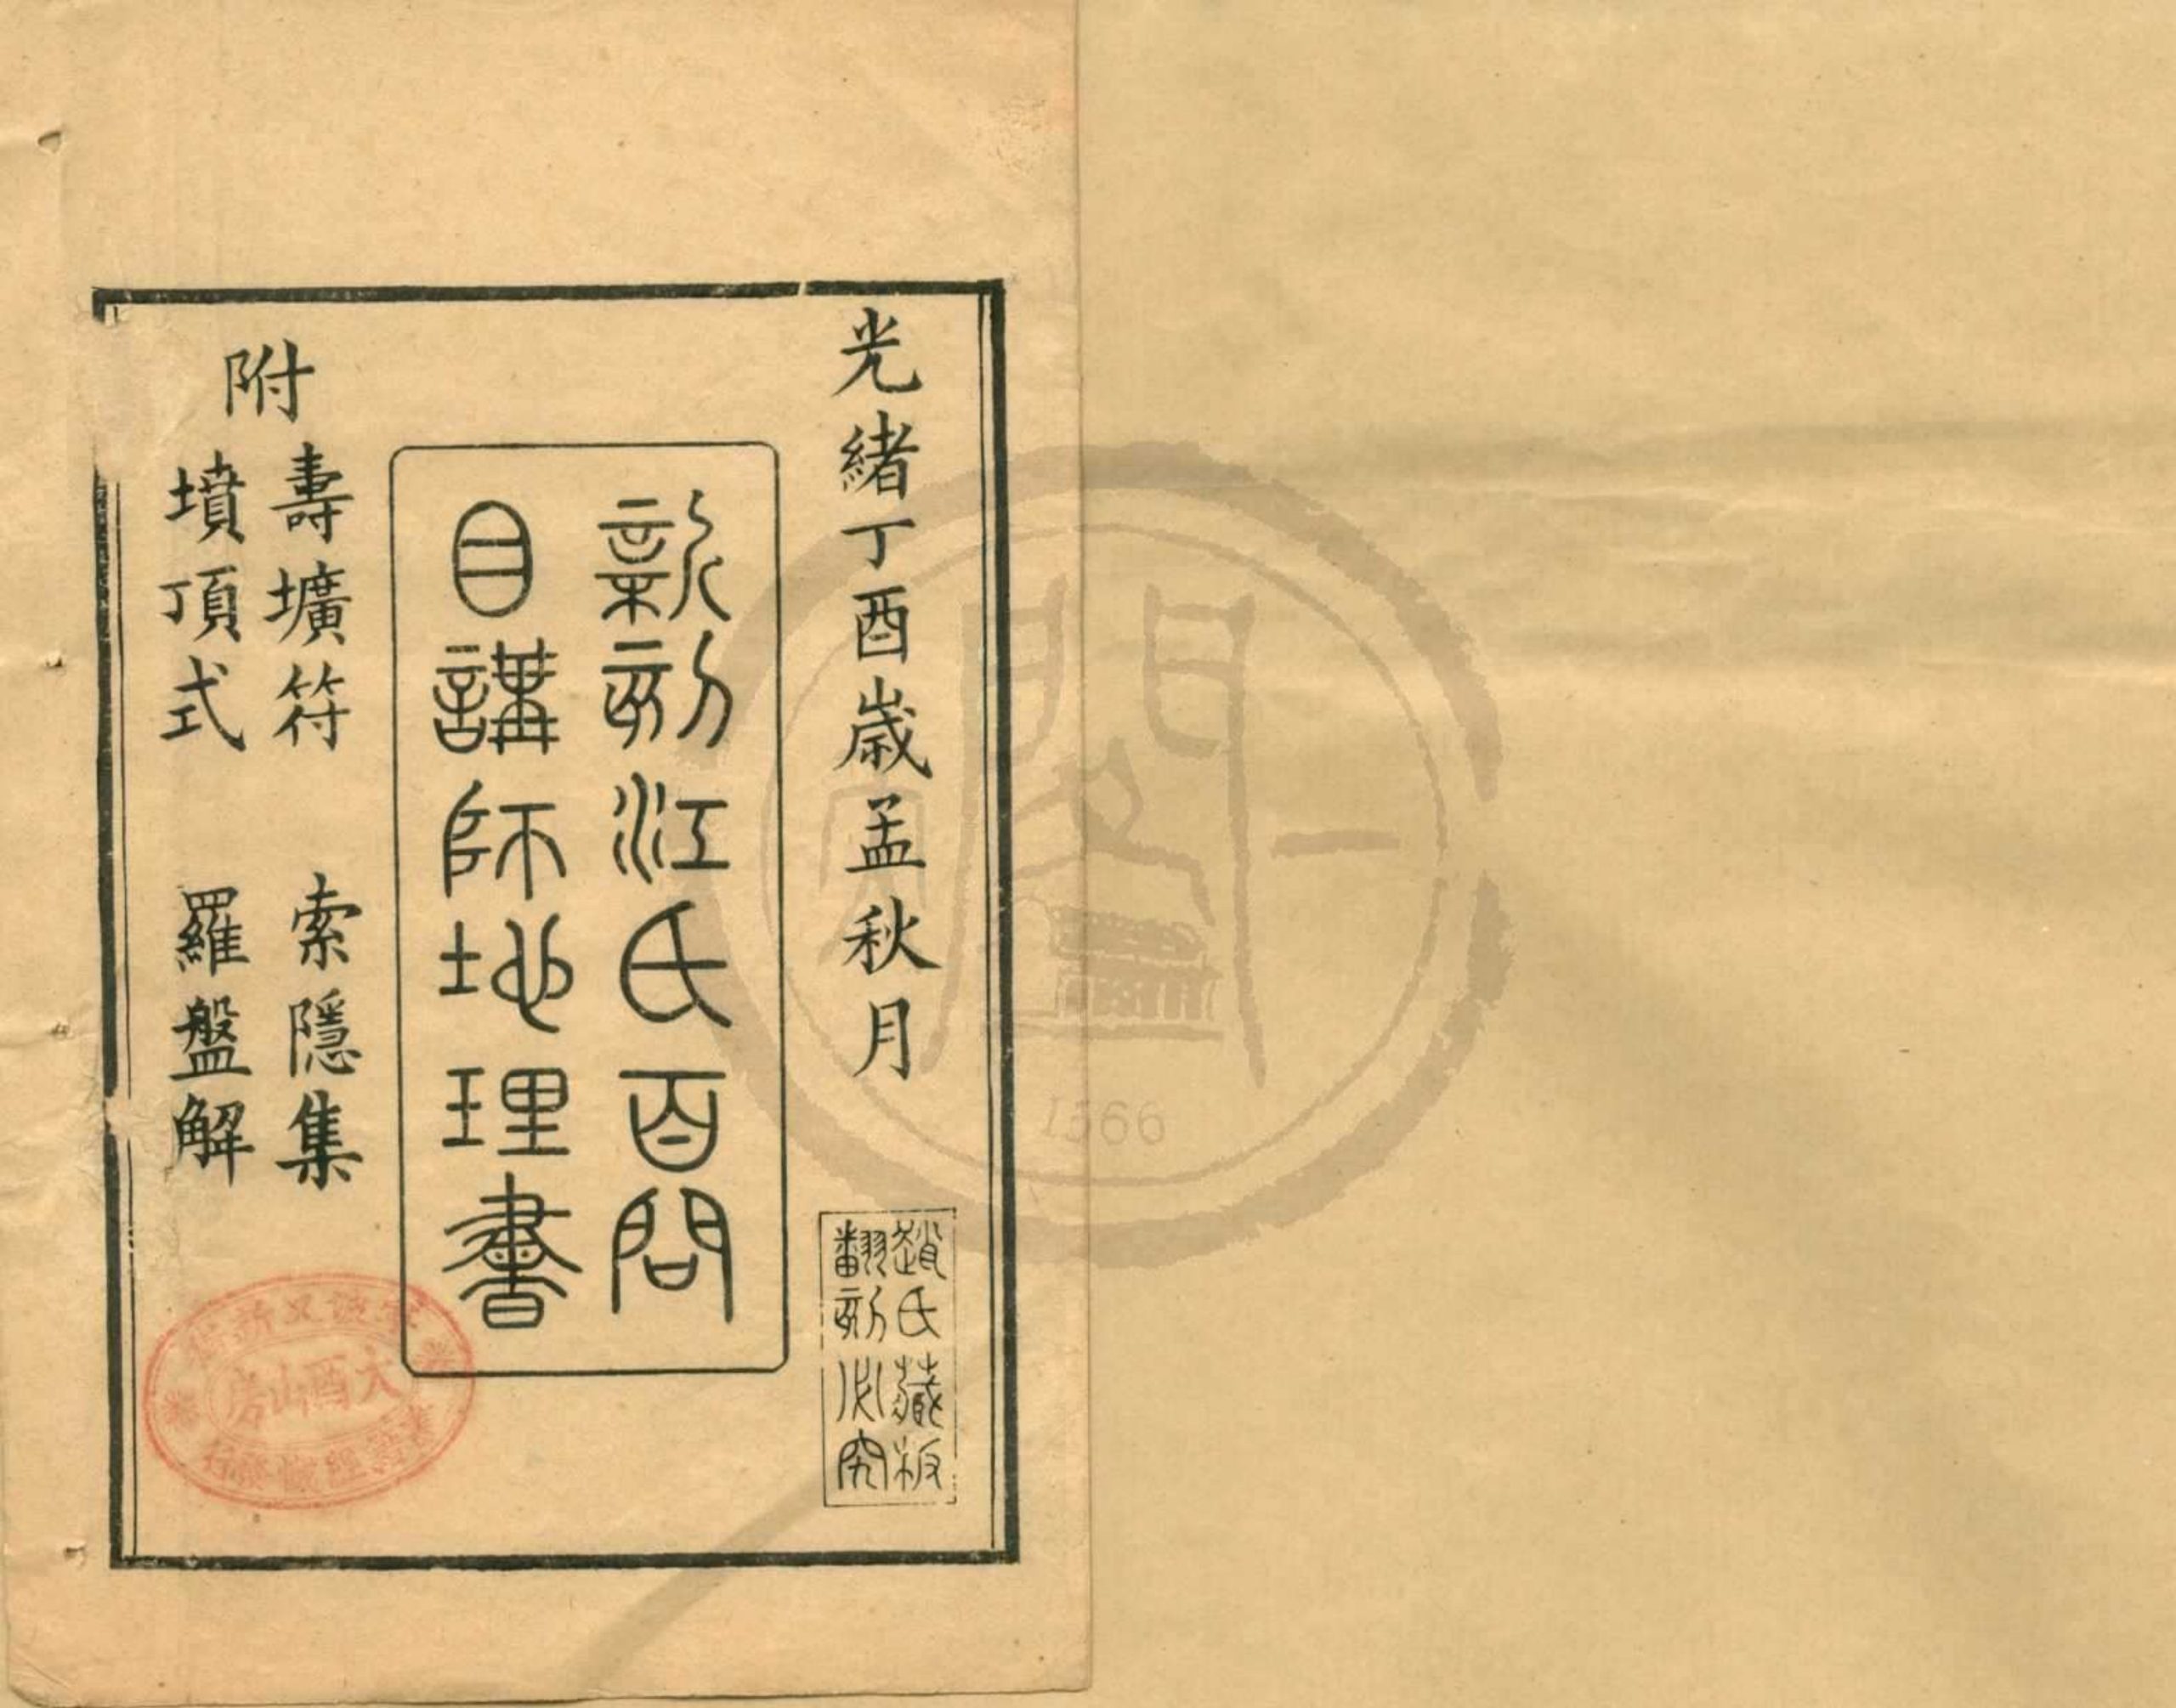 光緒丁酉歲孟秋月
趙氏藏板
翻刻必究
新刻江氏百問
目講師地理書
附
壽壙符 索隱集
墳頂式 羅盤解
大酉山房
閣一
1566